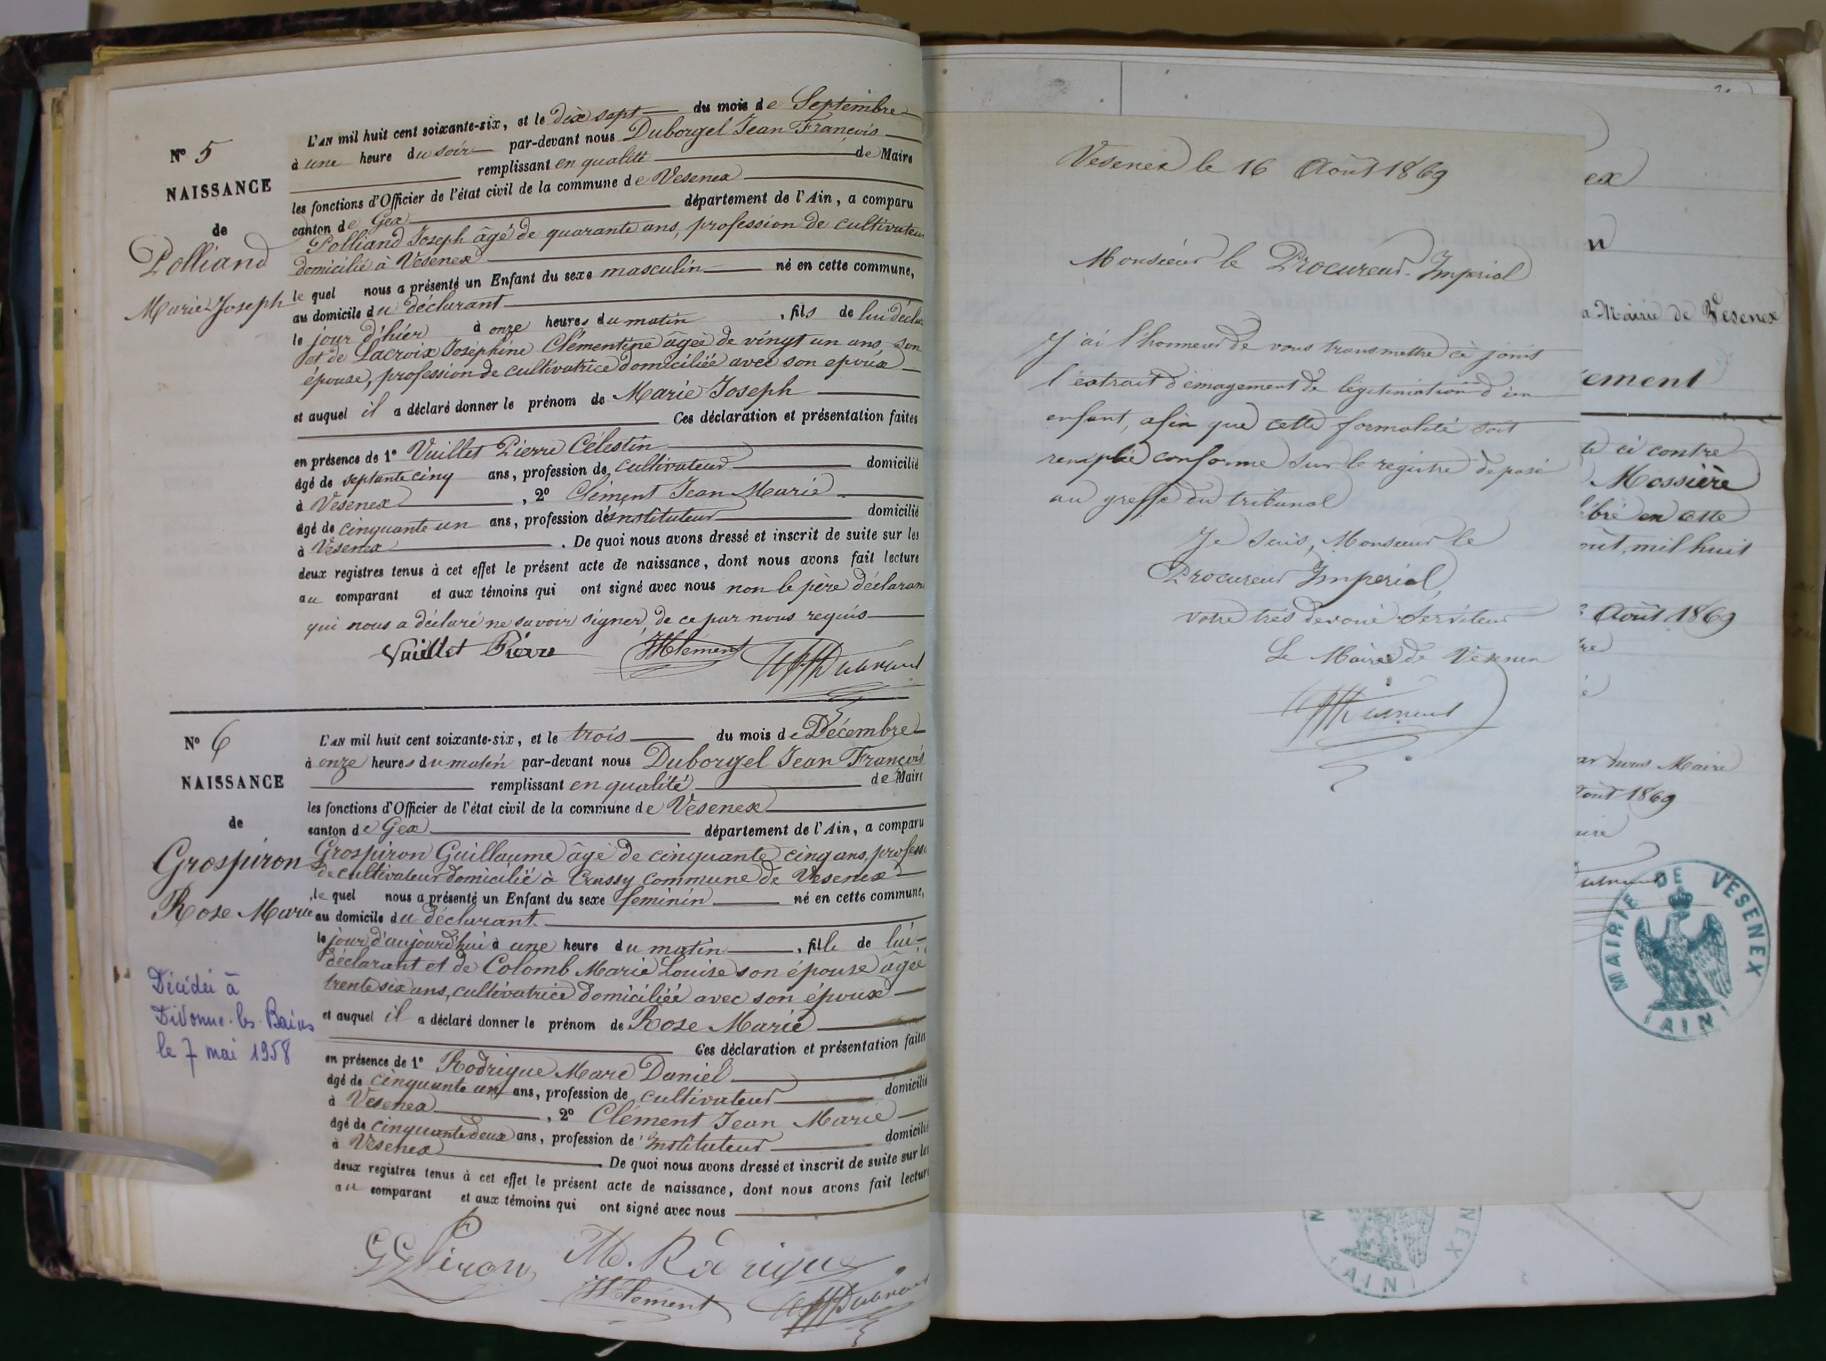 N° 5
NAISSANCE
de
Polliand
Marie Joseph
L'AN mil huit cent soixante-six, et le dix sept du mois de Septembre
à une heure du soir par-devant nous Duborgel Jean François
remplissant en qualité de Maire
les fonctions d'Officier de l'état civil de la commune de Vesenex
canton de Gex département de l'Ain, a comparu
Polliand Joseph âgé de quarante ans, profession de cultivateur
domicilié à Vesenex
le quel nous a présenté un Enfant du sexe masculin né en cette commune,
au domicile du déclarant
le jour d'hier à onze heures du matin, fils de lui décla
et de Lacroix Joséphine Clémentine âgée de vingt un ans son
épouse, profession de cultivatrice domiciliée avec son epoux
et auquel il a déclaré donner le prénom de Marie Joseph
Ces déclaration et présentation faites
en présence de 1° Vuillet Pierre Célestin
âgé de septante cinq ans, profession de cultivateur domicilié
à Vesenex, 2° Clément Jean Marie
âgé de cinquante un ans, profession d'instituteur domicilié
à Vesenex. De quoi nous avons dressé et inscrit de suite sur les
deux registres tenus à cet effet le présent acte de naissance, dont nous avons fait lecture
au comparant et aux témoins qui ont signé avec nous non le père déclarant
qui nous a déclaré ne savoir signer, de ce par nous requis
Vuillet Pierre
N° 6
NAISSANCE
de
Grospiron
Rose Marie
Décédée à
Divonne-les-Bains
le 7 mai 1958
L'AN mil huit cent soixante-six, et le trois du mois de Décembre
à onze heures du matin par-devant nous Duborgel Jean François
remplissant en qualité de Maire
les fonctions d'Officier de l'état civil de la commune de Vesenex
canton de Gex département de l'Ain, a comparu
Grospiron Guillaume âgé de cinquante cinq ans, profess
de cultivateur domicilié à Crassy commune de Vesenex
le quel nous a présenté un Enfant du sexe feminin né en cette commune,
au domicile du déclarant
le jour d'aujourd'hui à une heure du matin, fille de lui
déclarant et de Colomb Marie Louise son épouse âgée
trente six ans, cultivatrice domiciliée avec son époux
et auquel il a déclaré donner le prénom de Rose Marie
Ces déclaration et présentation faites
en présence de 1° Rodrigue Marc Daniel
âgé de cinquante un ans, profession de cultivateur domicilié
à Vesenex, 2° Clément Jean Marie
âgé de cinquante deux ans, profession de Instituteur domicilié
à Vesenex. De quoi nous avons dressé et inscrit de suite sur les
deux registres tenus à cet effet le présent acte de naissance, dont nous avons fait lecture
au comparant et aux témoins qui ont signé avec nous
M. Rodrigue
Vesenex le 16 Août 1869
Monsieur le Procureur Imperial
J'ai l'honneur de vous transmettre ci joint
l'extrait d'émagement de légitimation d'un
enfant, afin que cette formalité soit
remplie conforme sur le registre déposé
au greffe du tribunal
Je suis, Monsieur le
Procureur Imperial,
votre très devoué Serviteur
Le Maire de Vesenex
ex
n
a Mairie de Vesenex
ement
te ci contre
Mossière
bré en cette
oût, mil huit
Août 1869
ar nous Maire
Août 1869
MAIRIE DE VESENEX
(AIN)
(AIN)